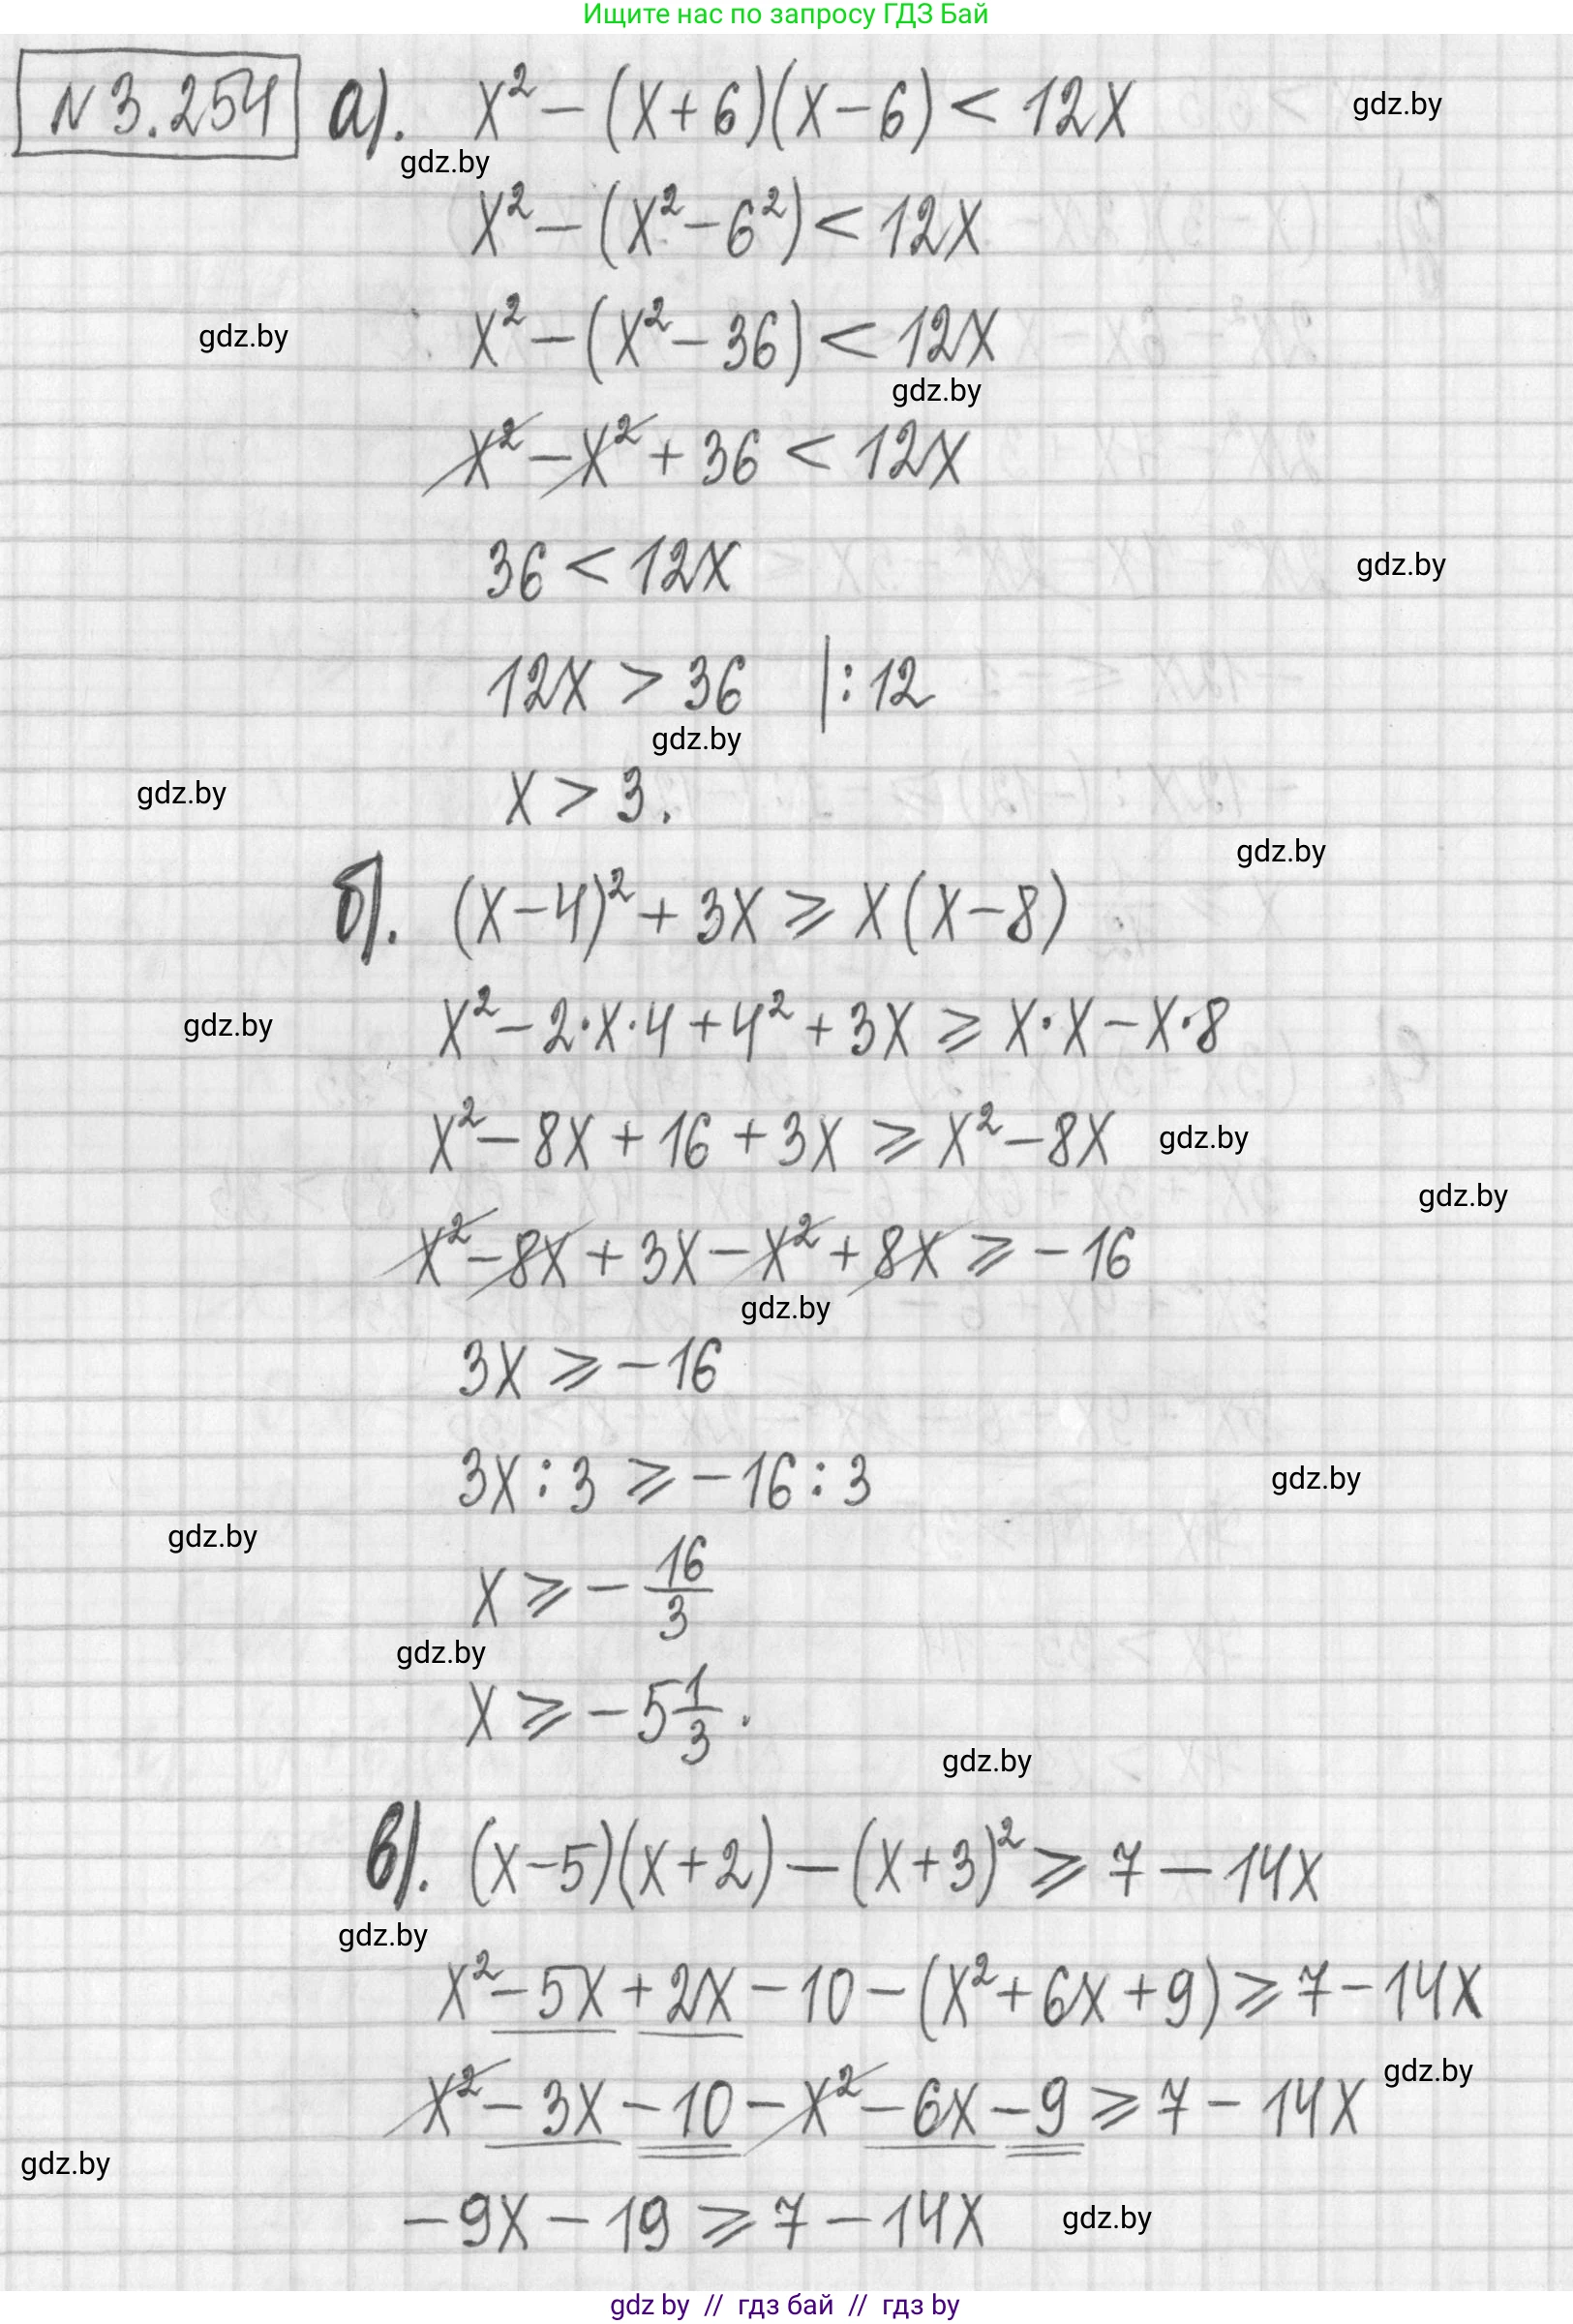 Ищите нас по запросу ГДЗ Бай
N 3.254 а). x² - (x + 6)(x - 6) < 12x
gdz.by
gdz.by
x² - (x² - 6²) < 12x
x² - (x² - 36) < 12x
gdz.by
gdz.by
x² - x² + 36 < 12x
36 < 12x
gdz.by
12x > 36 |: 12
gdz.by
x > 3.
gdz.by
gdz.by
б). (x - 4)² + 3x ⩾ x(x - 8)
x² - 2·x·4 + 4² + 3x ⩾ x·x - x·8
gdz.by
x² - 8x + 16 + 3x ⩾ x² - 8x
gdz.by
gdz.by
x² - 8x + 3x - x² + 8x ⩾ -16
gdz.by
3x ⩾ -16
3x : 3 ⩾ -16 : 3
gdz.by
gdz.by
x ⩾ - 16/3
gdz.by
x ⩾ -5 1/3.
gdz.by
в). (x - 5)(x + 2) - (x + 3)² ⩾ 7 - 14x
gdz.by
x² - 5x + 2x - 10 - (x² + 6x + 9) ⩾ 7 - 14x
gdz.by
x² - 3x - 10 - x² - 6x - 9 ⩾ 7 - 14x
gdz.by
-9x - 19 ⩾ 7 - 14x
gdz.by
gdz by // гдз бай // гдз by